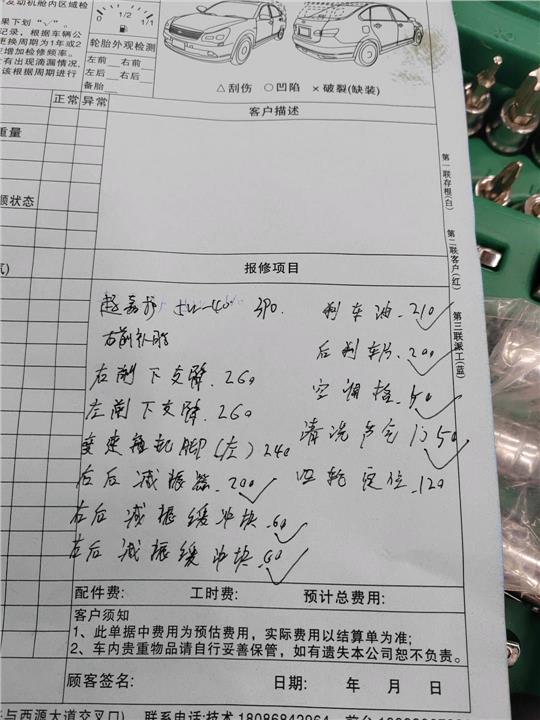 发动机舱内区域检
果下划"√"。
记录，根据车辆公
更换周期为1年或2
应增加检修频率。
有出现滴漏情况，
该根据周期进行
1/2
1/1
轮胎外观检测
左前 右前
左后 右后
备胎
△刮伤 ○凹陷 ×破裂(缺装)
正常 异常
客户描述
重量
顺状态
气)
第一联存根(白)
第二联客户(红)
第三联派工(蓝)
报修项目
超嘉护 5w-40 390.
右前补胎
右前下支臂.260
左前下支臂.260
变速箱机脚(左)240
右后减振器.200
右后减振缓冲块.60
左后减振缓冲块.60
刹车油.210
后刹车片.200
空调格.50
清洗 门50
四轮定位.120
配件费: 工时费: 预计总费用:
客户须知
1、此单据中费用为预估费用，实际费用以结算单为准;
2、车内贵重物品请自行妥善保管，如有遗失本公司恕不负责。
顾客签名: 日期: 年 月 日
与西源大道交叉口) 联系电话:技术18086842964 前台